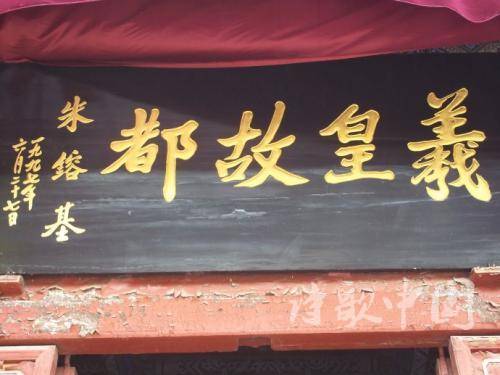 羲皇故都
朱鎔基
一九九七年
六月二十七日
诗歌中国